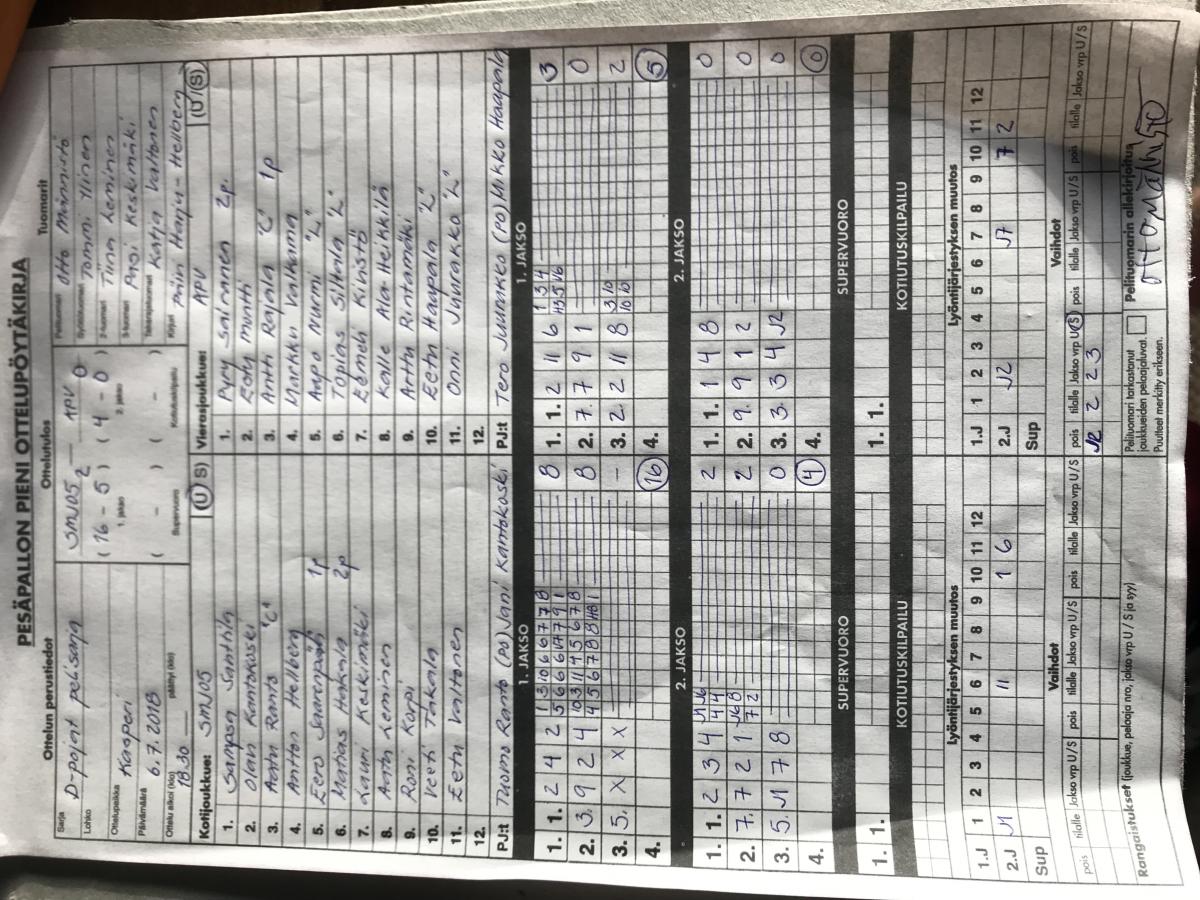 PESÄPALLON PIENI OTTELUPÖYTÄKIRJA
Ottelun perustiedot
Sarja D-pojat pelisarja
Lohko
Ottelupaikka Kaaperi
Päivämäärä 6.7.2018
Ottelu alkoi (klo) 1830 päättyi (klo)
Ottelutulos
SMJ05 2 — APV 0
( 16 - 5 ) ( 4 - 0 )
1. jakso 2. jakso
( - ) ( - )
Supervuoro Kotiutuskilpailu
Tuomarit
Pelituomari Otto Männistö
Syöttötuomari Tommi Yllinen
2-tuomari Tiina Leminen
3-tuomari Pasi Keskimäki
Takarajatuomari Katja Valtonen
Kirjuri Päivi Harju-Hellberg
Kotijoukkue: SMJ05 (U S)
1. Sampsa Santtila
2. Olavi Kantokoski
3. Aatu Ranto "C"
4. Anton Hellberg
5. Eero Saarenpää 1p
6. Matias Hakala 2p
7. Lauri Keskimäki
8. Anton Leminen
9. Roni Korpi
10. Veeti Takala
11. Eetu Valtonen
12.
PJ:t Tuomo Ranto (PO) Jani Kantokoski
Vierasjoukkue: APV (U S)
1. Pyry Salminen 2p.
2. Eemi Muntti
3. Antti Rajala "C" 1p
4. Markku Valkama
5. Aapo Nurmi "L"
6. Topias Siltala "L"
7. Eemeli Kivistö
8. Kalle Ala-Heikkilä
9. Arttu Rintamäki
10. Eetu Haapala "L"
11. Onni Juurakko "L"
12.
PJ:t Tero Juurakko (PO) Ukko Haapala
1. JAKSO
1. 1. 2 4 2 8
2. 3. 9 2 4 8
3. 5. X X X -
4. 16
1. JAKSO
1. 1. 2 11 6 3
2. 7. 7 9 1 0
3. 2. 2 11 8 2
4. 5
2. JAKSO
1. 1. 2 3 4 2
2. 7. 7 2 1 2
3. 5. J1 7 8 0
4. 4
2. JAKSO
1. 1. 1 4 8 0
2. 9. 9 1 2 0
3. 3. 3 4 J2 0
4. 0
SUPERVUORO
1. 1.
SUPERVUORO
1. 1.
KOTIUTUSKILPAILU
KOTIUTUSKILPAILU
Lyöntijärjestyksen muutos
1.J 1 2 3 4 5 6 7 8 9 10 11 12
2.J J1 11 1 6
Sup
Lyöntijärjestyksen muutos
1.J 1 2 3 4 5 6 7 8 9 10 11 12
2.J J2 J7 7 2
Sup
Vaihdot
pois tilalle Jakso vrp U/S pois tilalle Jakso vrp U/S pois tilalle Jakso vrp U/S
Vaihdot
pois tilalle Jakso vrp U/S pois tilalle Jakso vrp U/S pois tilalle Jakso vrp U/S
J2 2 2 3
Rangaistukset (joukkue, pelaaja nro, jakso vrp U / S ja syy)
Pelituomari tarkastanut
joukkueiden pelaajaluvat.
Puutteet merkitty erikseen.
Pelituomarin allekirjoitus
Otto Männistö